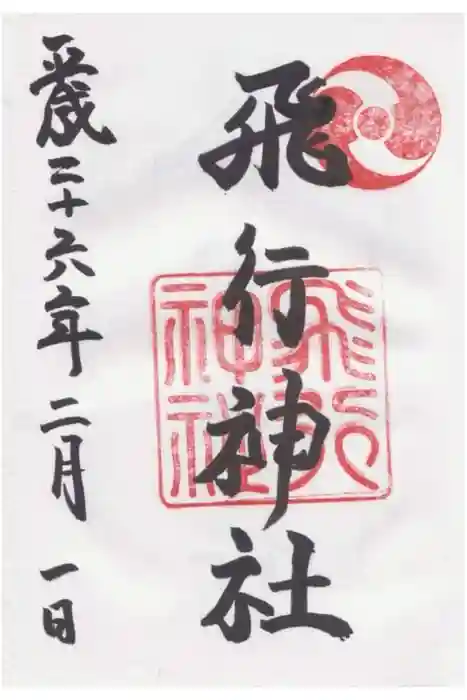 飛行神社
飛行
神社
平成二十六年二月一日